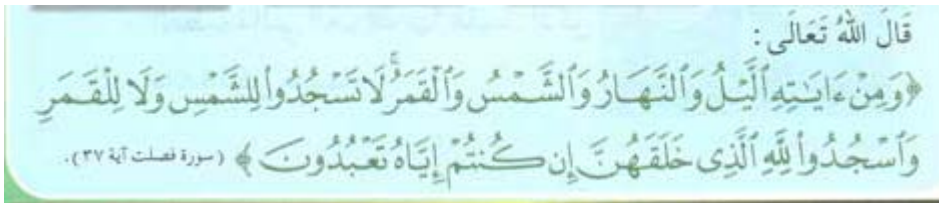 قَالَ اللهُ تَعَالَى :
﴿وَمِنْ ءَايَٰتِهِ ٱلَّيْلُ وَٱلنَّهَارُ وَٱلشَّمْسُ وَٱلْقَمَرُ ۚ لَا تَسْجُدُوا۟ لِلشَّمْسِ وَلَا لِلْقَمَرِ
وَٱسْجُدُوا۟ لِلَّهِ ٱلَّذِى خَلَقَهُنَّ إِن كُنتُمْ إِيَّاهُ تَعْبُدُونَ ﴾ (سورة فصلت آية ٣٧).